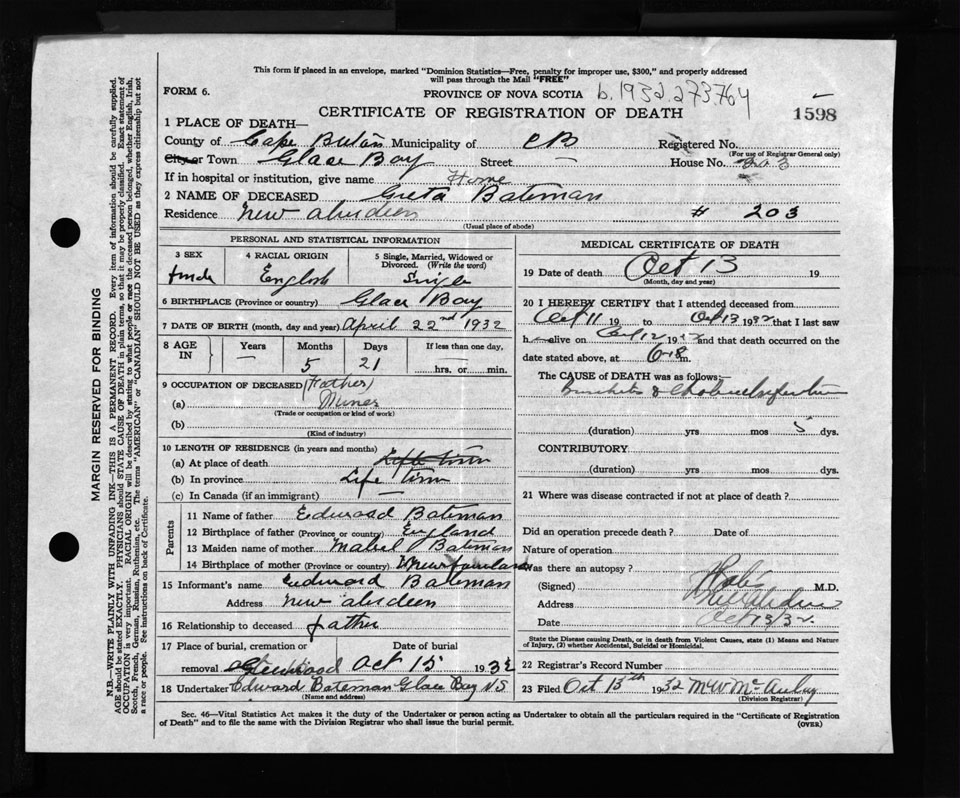 This form if placed in an envelope, marked "Dominion Statistics—Free, penalty for improper use, $300," and properly addressed
will pass through the Mail "FREE"
FORM 6.
PROVINCE OF NOVA SCOTIA b.1932.273764
CERTIFICATE OF REGISTRATION OF DEATH 1598
1 PLACE OF DEATH—
County of Cape Breton Municipality of CB Registered No.
(For use of Registrar General only)
City or Town Glace Bay Street — House No. 203
If in hospital or institution, give name Home
2 NAME OF DECEASED Greta Bateman
Residence New Aberdeen # 203
(Usual place of abode)
PERSONAL AND STATISTICAL INFORMATION
3 SEX 4 RACIAL ORIGIN 5 Single, Married, Widowed or
Divorced. (Write the word)
English Single
6 BIRTHPLACE (Province or country) Glace Bay
7 DATE OF BIRTH (month, day and year) April 22nd 1932
8 AGE IN Years Months Days If less than one day,
— 5 21 hrs. or min.
9 OCCUPATION OF DECEASED (Father)
(a) Miner
(Trade or occupation or kind of work)
(b)
(Kind of industry)
10 LENGTH OF RESIDENCE (in years and months)
(a) At place of death Life time
(b) In province Life time
(c) In Canada (if an immigrant) —
Parents
11 Name of father Edward Bateman
12 Birthplace of father (Province or country) England
13 Maiden name of mother Mabel Bateman
14 Birthplace of mother (Province or country) Newfoundland
15 Informant's name Edward Bateman
Address New Aberdeen
16 Relationship to deceased father
17 Place of burial, cremation or Date of burial
removal Oct 15 1932
18 Undertaker Edward Bateman Glace Bay N.S.
(Name and address)
MEDICAL CERTIFICATE OF DEATH
19 Date of death Oct 13 19
(Month, day and year)
20 I HEREBY CERTIFY that I attended deceased from
Oct 11 19 to Oct 13 1932 that I last saw
h alive on 12 19 and that death occurred on the
date stated above, at m.
The CAUSE of DEATH was as follows:—
(duration) yrs mos 5 dys.
CONTRIBUTORY
(duration) yrs mos dys.
21 Where was disease contracted if not at place of death?
Did an operation precede death? Date of
Nature of operation
Was there an autopsy?
(Signed) M.D.
Address
Date Oct 13/32
State the Disease causing Death, or in death from Violent Causes, state (1) Means and Nature
of Injury, (2) whether Accidental, Suicidal or Homicidal.
22 Registrar's Record Number
23 Filed Oct 13th 1932
(Division Registrar)
Sec. 46—Vital Statistics Act makes it the duty of the Undertaker or person acting as Undertaker to obtain all the particulars required in the "Certificate of Registration
of Death" and to file the same with the Division Registrar who shall issue the burial permit.
(OVER)
MARGIN RESERVED FOR BINDING
N.B.—WRITE PLAINLY WITH UNFADING INK—THIS IS A PERMANENT RECORD. Every item of information should be carefully supplied.
AGE should be stated EXACTLY. PHYSICIANS should STATE CAUSE OF DEATH in plain terms, so that it may be properly classified. Exact statement of
OCCUPATION is very important. RACIAL ORIGIN will be described by stating to what people or race the deceased person belonged, whether English, Irish,
Scotch, French, German, Russian, Ruthenian, etc. The terms "AMERICAN" or "CANADIAN" SHOULD NOT BE USED as they express citizenship but not
a race or people. See instructions on back of Certificate.